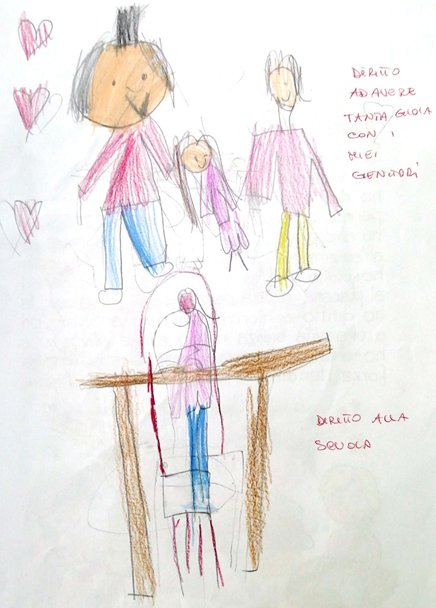 DIRITTO
AD AVERE
TANTA GIOIA
CON I
MIEI
GENITORI
DIRITTO ALLA
SCUOLA